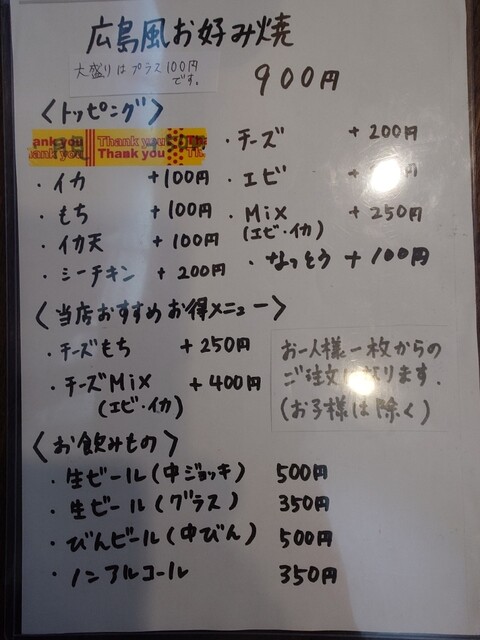 広島風お好み焼
大盛りはプラス100円
です。
900円
<トッピング>
Thank you
Thank you
・イカ +100円
・もち +100円
・イカ天 +100円
・シーチキン +200円
・チーズ +200円
・エビ
・Mix +250円
(エビ・イカ)
・なっとう +100円
<当店おすすめお得メニュー>
・チーズもち +250円
・チーズMix +400円
(エビ・イカ)
お一人様一枚からの
ご注文になります。
(お子様は除く)
<お飲みもの>
・生ビール(中ジョッキ) 500円
・生ビール(グラス) 350円
・びんビール(中びん) 500円
・ノンアルコール 350円